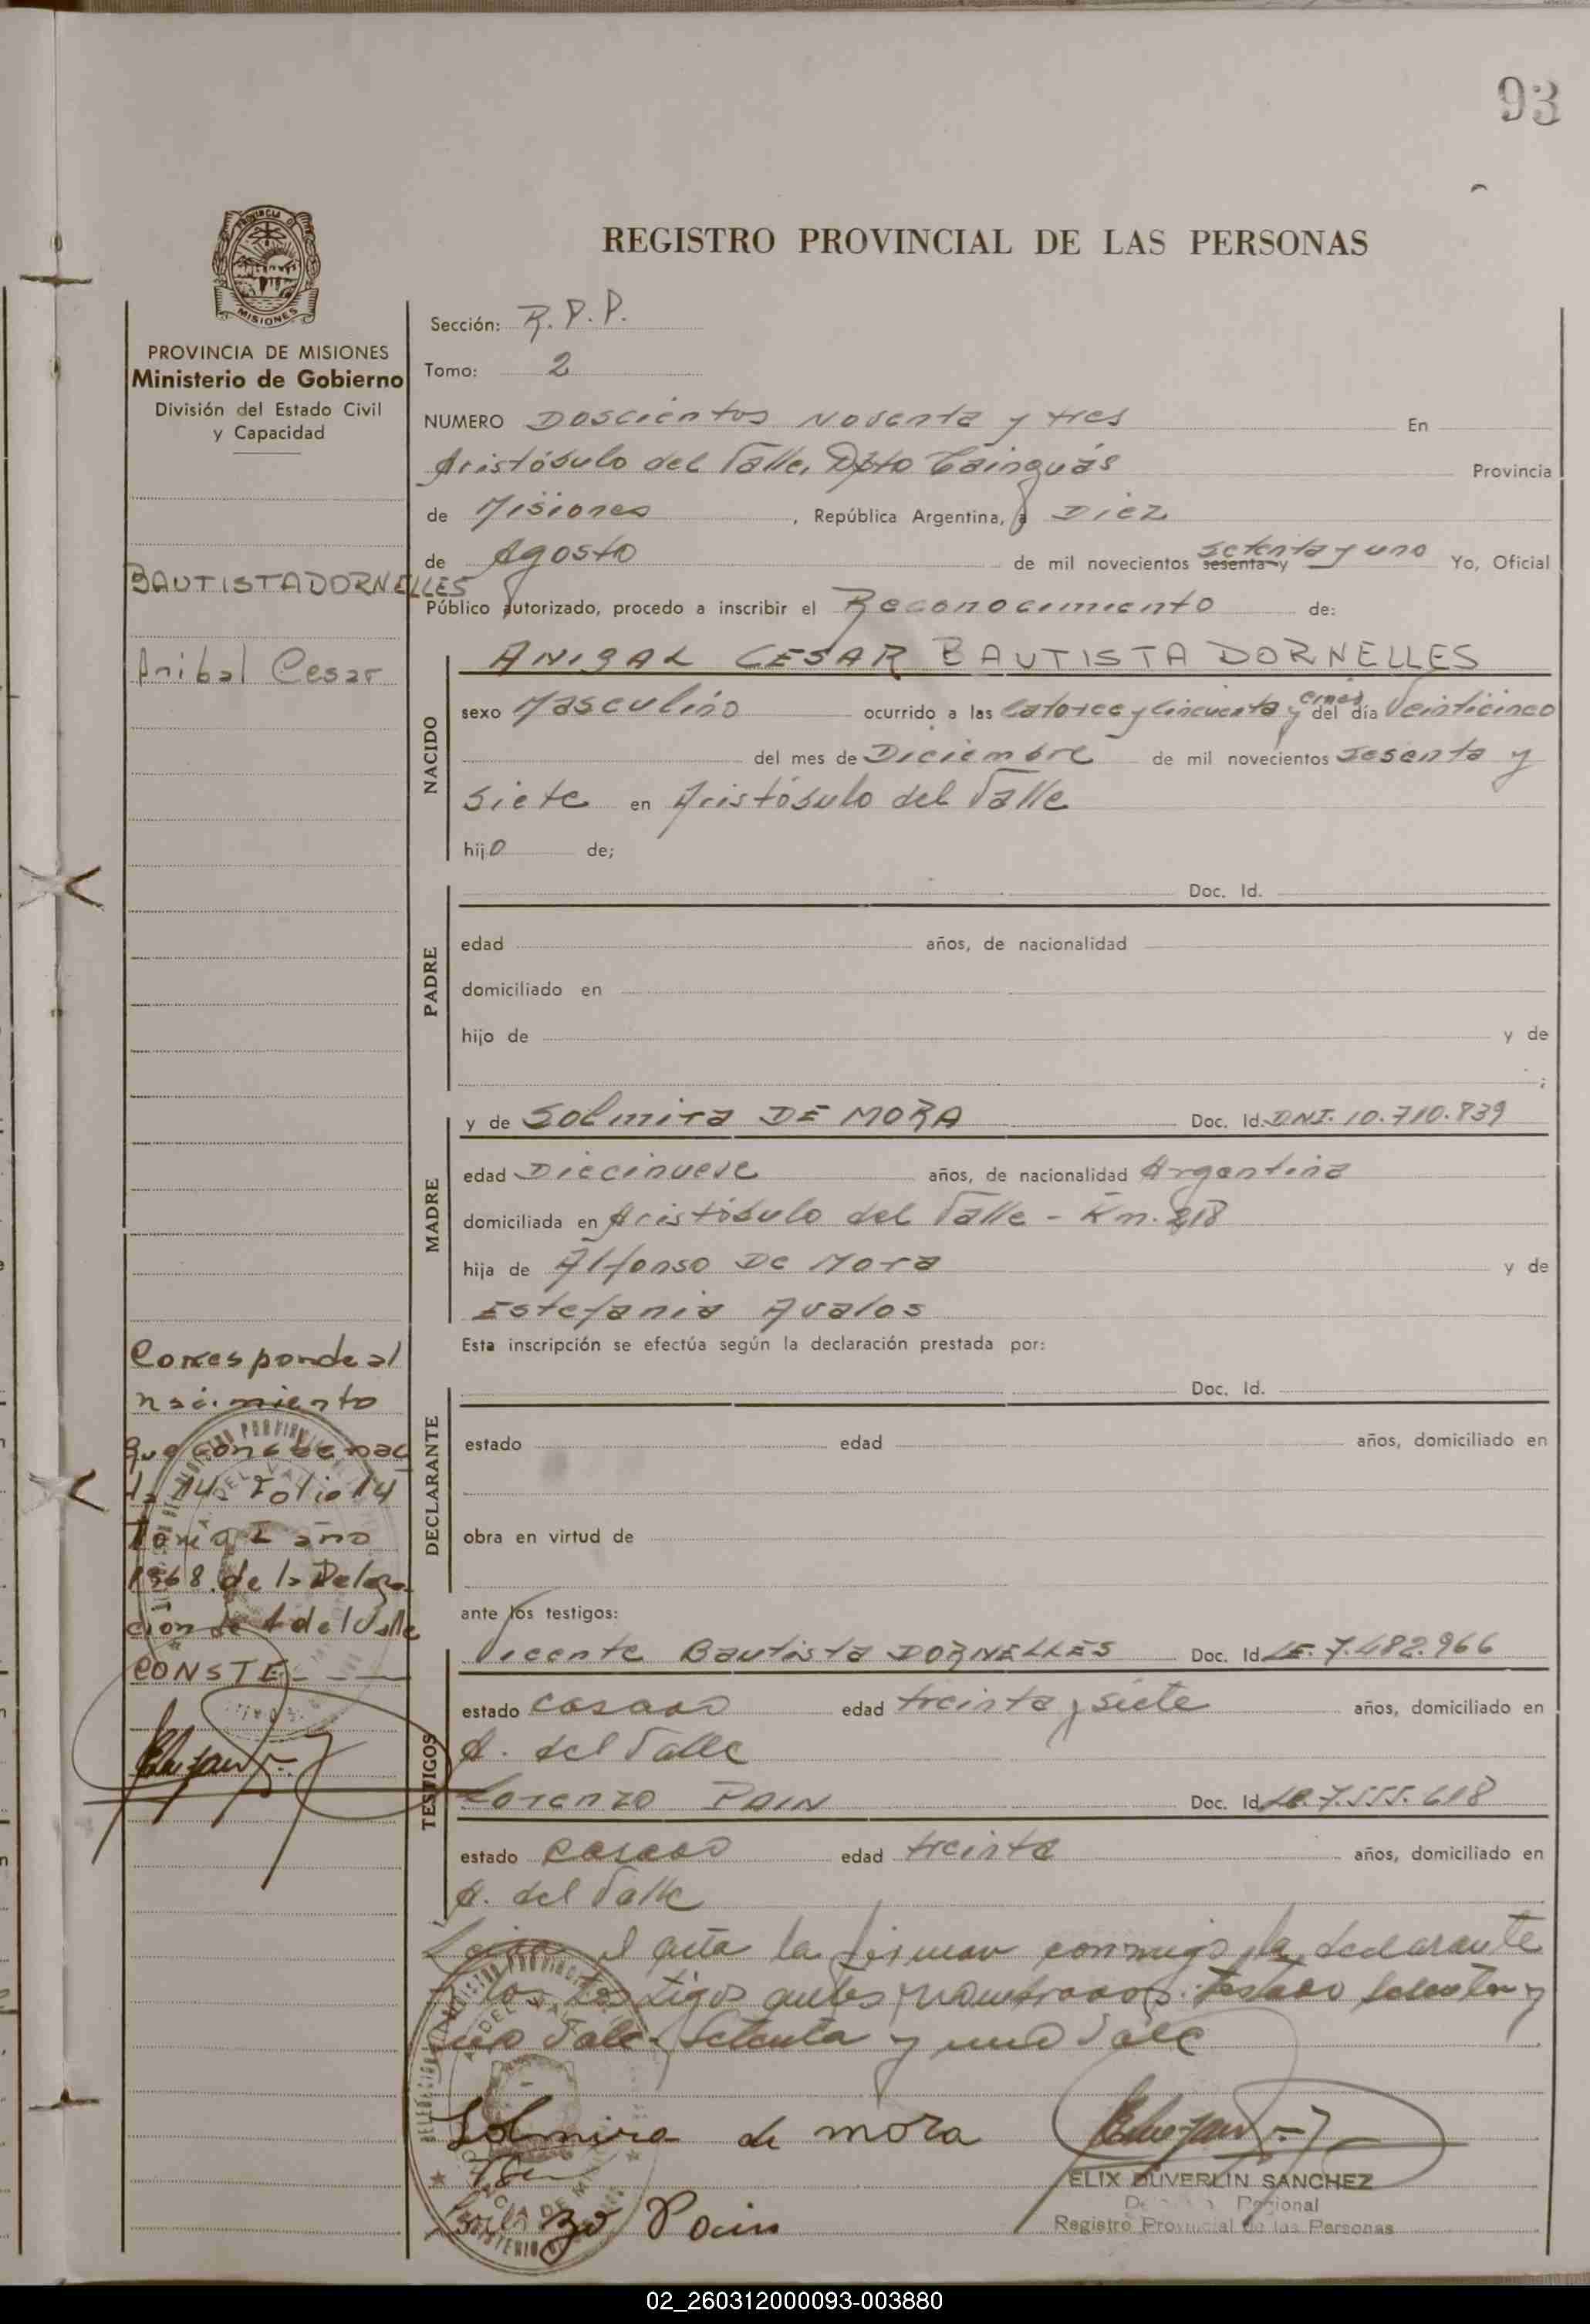 93
REGISTRO PROVINCIAL DE LAS PERSONAS
PROVINCIA DE MISIONES
Ministerio de Gobierno
División del Estado Civil
y Capacidad
BAUTISTA DORNELLES
Anibal Cesar
Sección: R. P. P.
Tomo: 2
NUMERO Doscientos Noventa y tres En
Aristóbulo del Valle, Dpto Cainguás Provincia
de Misiones, República Argentina, a Diez
de Agosto de mil novecientos sesenta y setenta y uno Yo, Oficial
Público autorizado, procedo a inscribir el Reconocimiento de:
NACIDO
ANIBAL CESAR BAUTISTA DORNELLES
sexo Masculino ocurrido a las Catorce y Cincuenta y cinco del día Veinticinco
del mes de Diciembre de mil novecientos sesenta y
siete en Aristóbulo del Valle
hijo de;
PADRE
Doc. Id.
edad años, de nacionalidad
domiciliado en
hijo de y de
;
MADRE
y de Solmira DE MORA Doc. Id. DNI. 10.710.839
edad Diecinueve años, de nacionalidad Argentina
domiciliada en Aristóbulo del Valle - Km. 218
hija de Alfonso De Mora y de
Estefania Avalos
Esta inscripción se efectúa según la declaración prestada por:
DECLARANTE
Doc. Id.
estado edad años, domiciliado en
obra en virtud de
ante los testigos:
TESTIGOS
Vicente Bautista DORNELLES Doc. Id. LE. 7.482.966
estado casado edad treinta y siete años, domiciliado en
A. del Valle
Lorenzo PAIN Doc. Id. LE. 7.555.618
estado casado edad treinta años, domiciliado en
A. del Valle
Leida el acta la firman conmigo, la declarante
y los testigos antes nombrados. testado sesenta y
uno Vale - Setenta y uno Vale
Corresponde al
nacimiento
que consta en ac
ta 14 Folio 14
Tomo I año
1968 de la Delega
ción de A del Valle
CONSTE
Solmira de mora
Pain
ELIX DUVERLIN SANCHEZ
Registro Provincial de las Personas
02_260312000093-003880